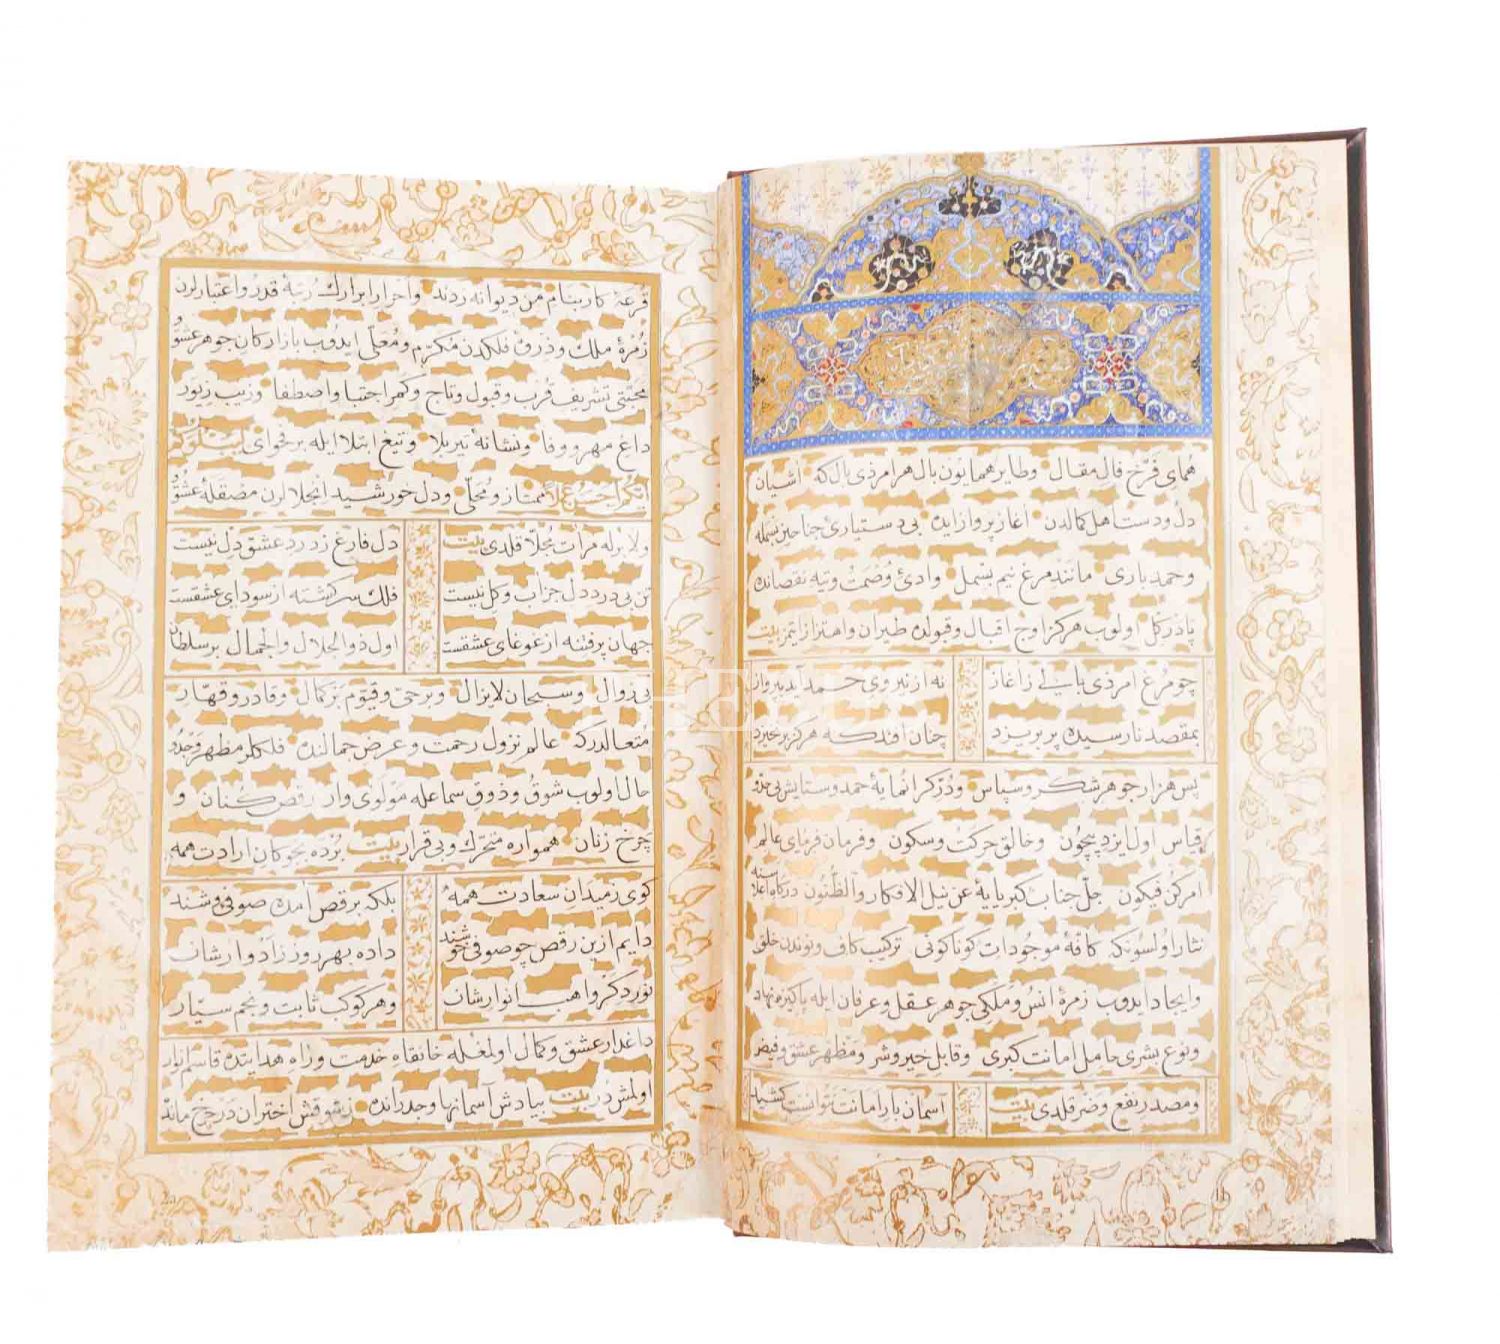 همای فرّخ فال مقال وطایر همایون بال هر امرذی بال که آشیان
دل ودست اهل کمالدن آغاز پرواز ایده بی دستیاری جناحین بسمله
وحمد باری مانند مرغ نیم بسمل وادئ وصمت وتیه نقصانده
پا در کل اولوب هرکز اوج اقبال وقبوله طیران واهتزاز ایتمز بیت
چو مرغ امرذی بالی ز آغاز نه از نیروی حمد آید بپرواز
بمقصد نارسیده پر بریزد چنان افتد که هرکز برنخیزد
پس هزار جوهر شکر وسپاس ودُرَر کرانمایهٔ حمد وستایش بی حدو
قیاس اول ایزد بیچون وخالق حرکت وسکون وفرمان فرمای عالم
امر کن فیکون جلّ جناب کبریایه عن نیل الافکار والظّنون درکاه اعلاسنه
نثار اولسونکه کافهٔ موجودات کوناکونی ترکیب کاف ونوندن خلق
وایجاد ایدوب زمرهٔ انس وملکی جوهر عقل وعرفان ایله پاکیزه نهاد
ونوع بشری حامل امانت کبری وقابل خیر وشر ومظهر عشق وفیض
ومصدر نفع وضر قلدی بیت آسمان بار امانت نتوانست کشید
قرعهٔ کار بنام من دیوانه زدند واحرار ابرارک رتبهٔ قدر واعتبارلرن
زمرهٔ ملک وذروهٔ فلکدن مکرّم ومعلّی ایدوب بازارکان جوهر عشق و
محبتی تشریف قرب وقبول وتاج وکمر اجتبا واصطفا وزیب وزیور
داغ مهر ووفا ونشانهٔ تیر بلا وتیغ ابتلا ایله بر فحوای لیبلوکم
ایّکم احسن عملا ممتاز ومحلّی ودل خورشید انجلالرن مصقلهٔ عشق و
ولا برله مرآت مجلّا قلدی بیت دل فارغ ز درد عشق دل نیست
تن بی درد دل جز آب وکل نیست فلک سرکشته از سودای عشقست
جهان پر فتنه از غوغای عشقست اول ذوالجلال والجمال بر سلطان
بی زوال وسبحان لایزال وبر حیّ وقیّوم پر کمال وقادر وقهّار
متعالدرکه عالم نزول رحمت وعرض جمالنده فلکلر مظهر وجدو
حال اولوب شوق وذوق سماعله مولوی وار رقص کنان و
چرخ زنان همواره متحرّک وبی قرار بیت برده بچوکان ارادت همه
کوی ز میدان سعادت همه بلکه برقص آمده صوفی وشند
دایم ازین رقص چو صوفی خوشند داده بهر روز ز ادوارشان
نور دکر واهب انوارشان وهر کوکب ثابت ونجم سیّار
داغدار عشق وکمال اولمغله خانقاه خدمت وراه هدایتده قاسم انوار
اولمشدر بیت بیادش آسمانها وجد رانده ز شوقش اختران در چرخ مانده